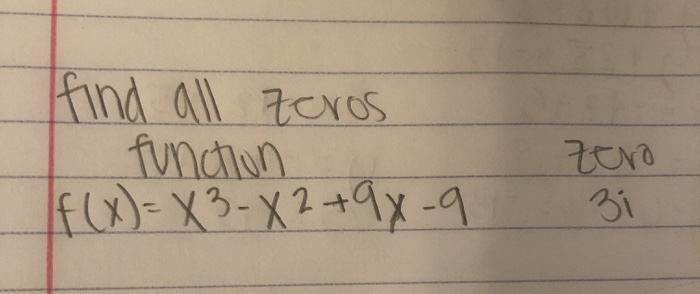 find all zeros
function zero
f(x)= x3-x2+9x-9 3i